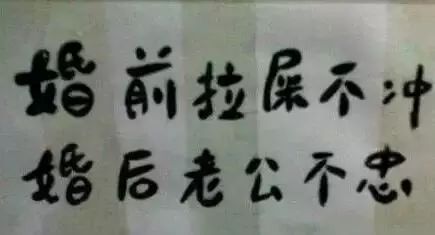 婚前拉屎不冲
婚后老公不忠